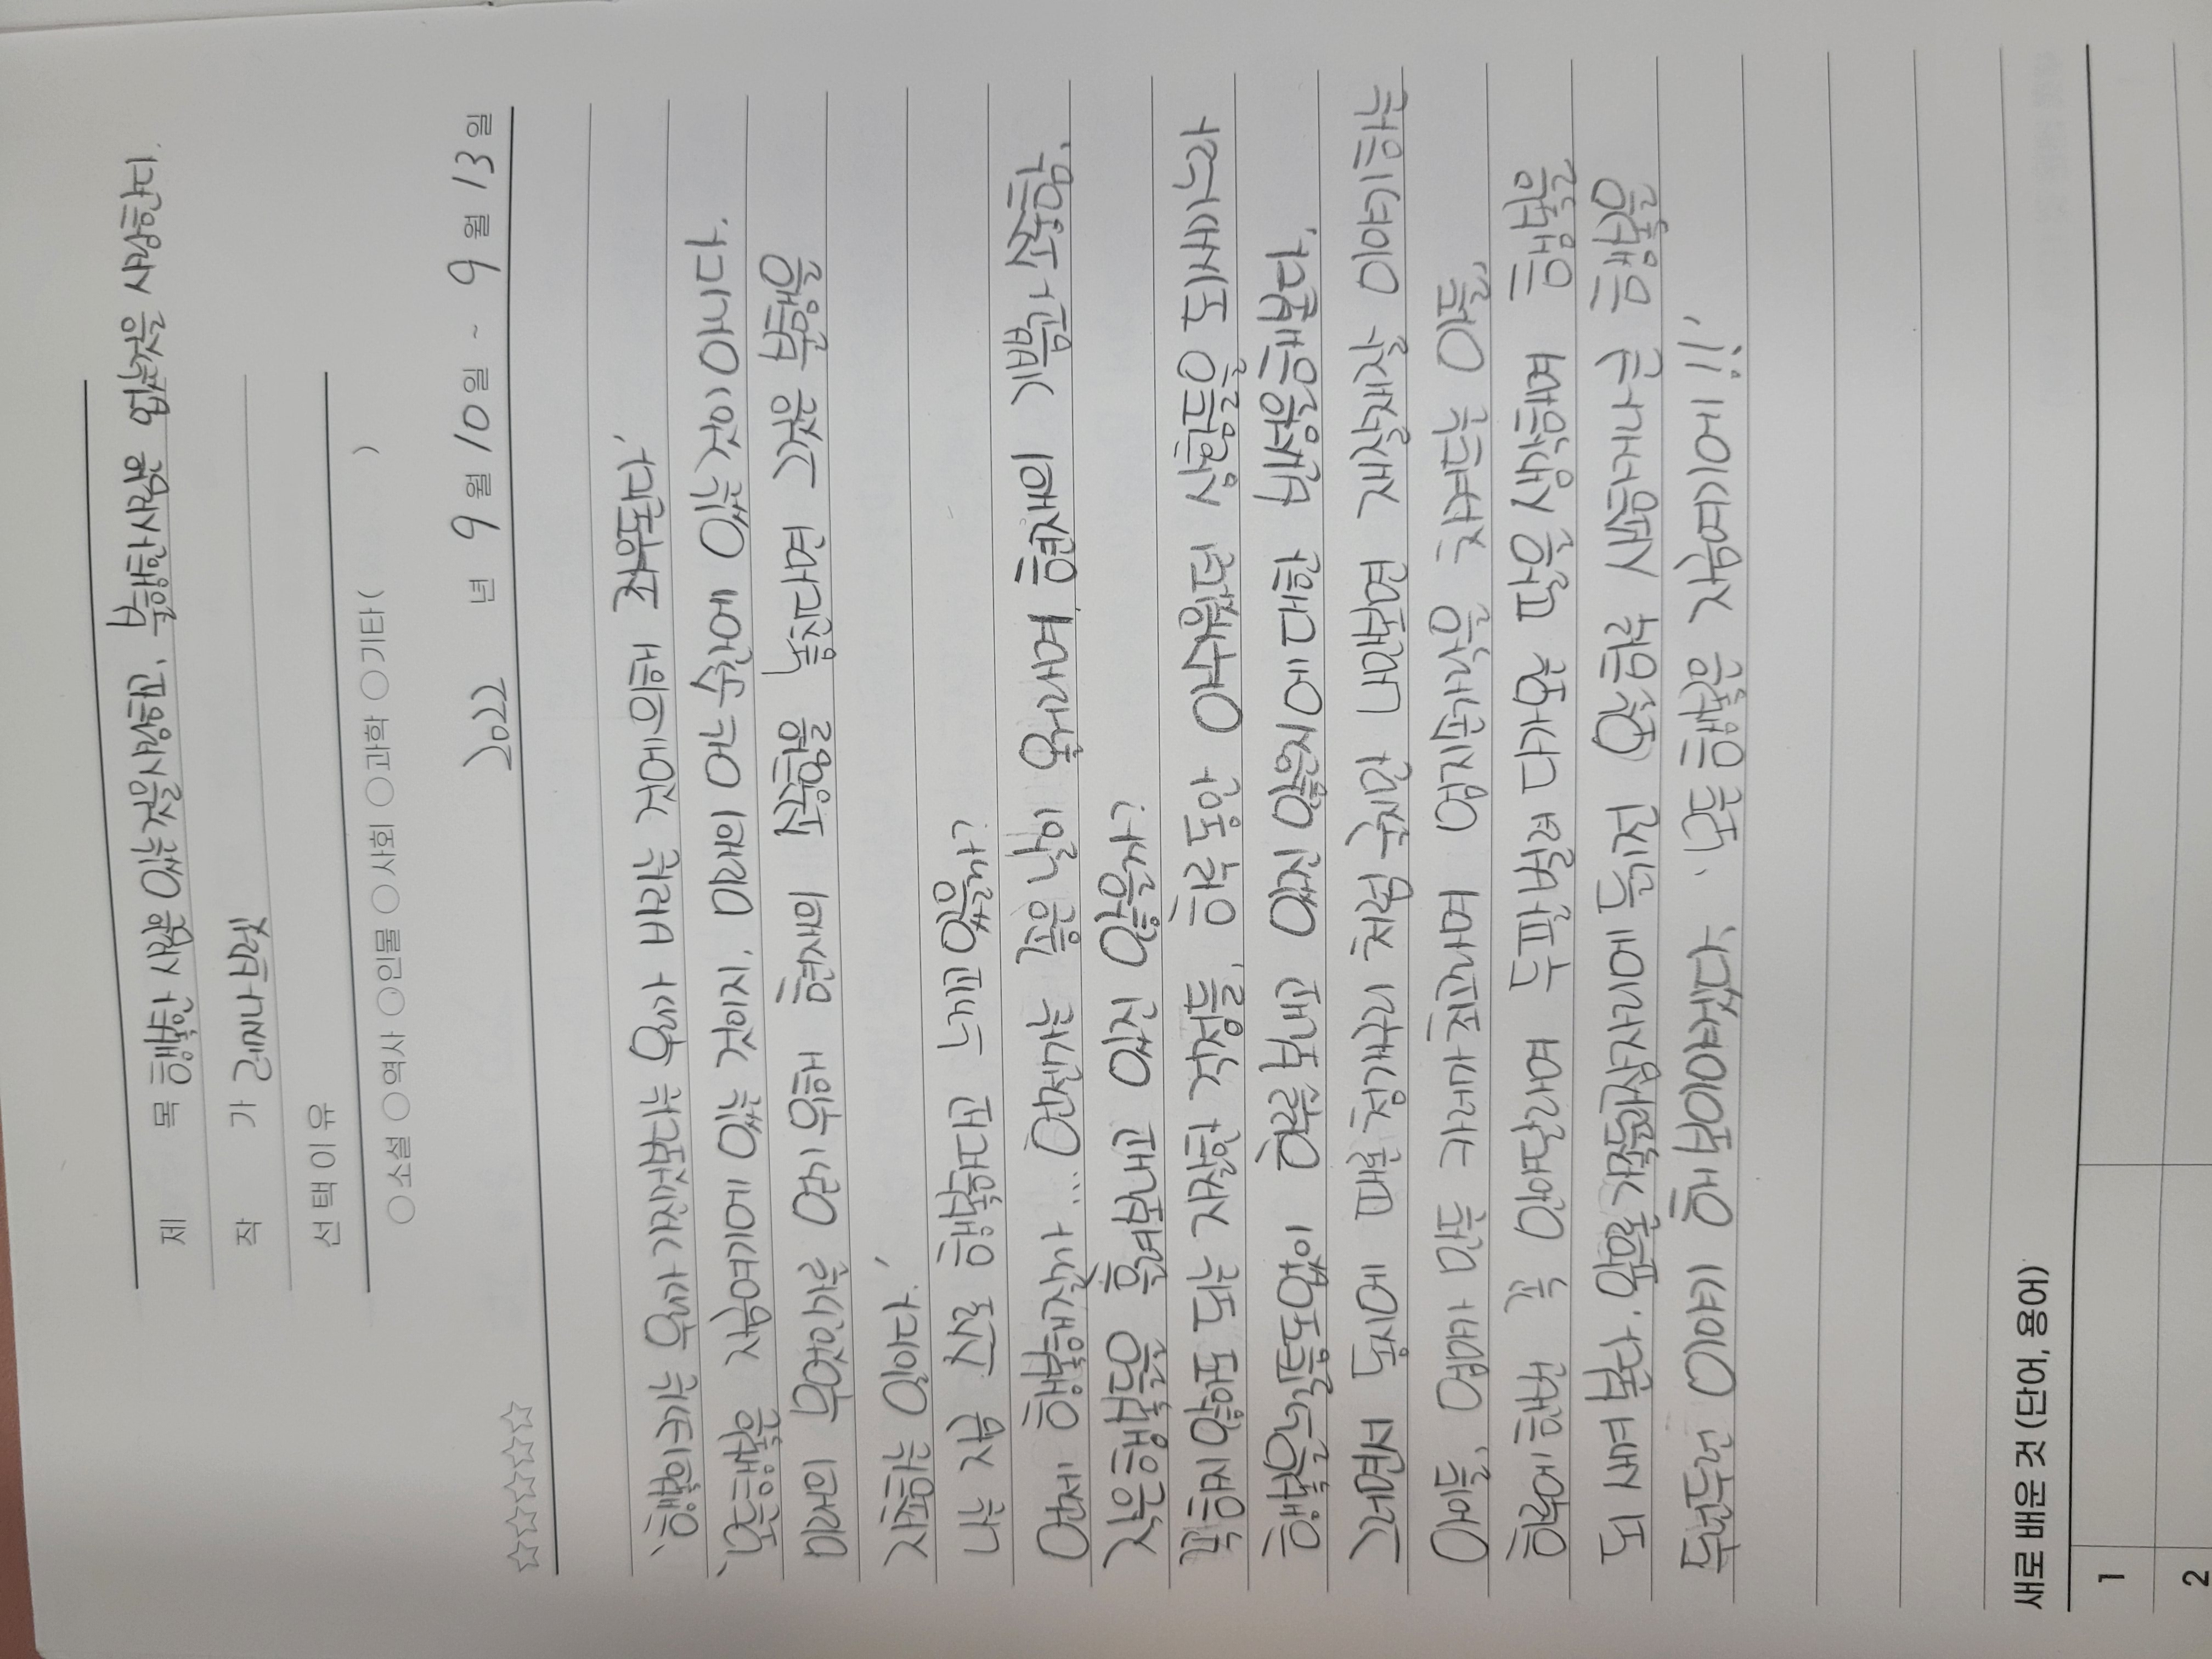 제 목 행복한 사람은 있는것을사랑하고, 불행한사람은 없는것을 사랑한다.
작 가 레지나 브렛
선택이유
○소설 ○역사 ○인물 ○사회 ○과학 ○기타 ( )
2022 년 9 월 10 일 ~ 9 월 13 일
☆☆☆☆☆
'행복의크기는 우리가 가진것보다는 우리가 바라는 것에의해 좌우된다'
'모든행복은 지금여기에 있는 것이지, 미래의 어느 순간에 있는 것이 아니다.
미래의 무엇인가를 얻기 위해 현재의 소중함을 놓친다면 그것은 불행을
자초하는 일이다.'
나는 지금 스스로 행복하다고 느끼고 있을까?
언제 행복해질까... 언젠가는 좋은 날이 올거라며, 현재의 기쁨과 소중함,
작은행복들을 흘려보내고 있진 않을까?
꼭하지 않아도 되는 자잘한 걱정들, 하루 동안 아쉬웠던 상황들을 되새기느라
행복을느낄틈도없이 하루를 보내고 있진 않은지에 대한 반성을해본다.
그러면서 동시에 때론 청개구리 처럼 굴지만 나만보면 재잘재잘 이야기하는
아이들, 엄마가 만든 카레가 최고라며 엄지손가락을 치켜드는 아들,
하루에 한번 꼭 안아달라며 두팔 벌려 다가오는 딸을 생각하며 행복을
되 새겨 본다. 앞으론 가족들과잠자리에 들기전 오늘 하루 사소하거나 큰 행복을
두런두런 이야기 해 보아야겠다. '모든 행복은 지금여기에!!'
새로 배운 것 (단어, 용어)
1
2